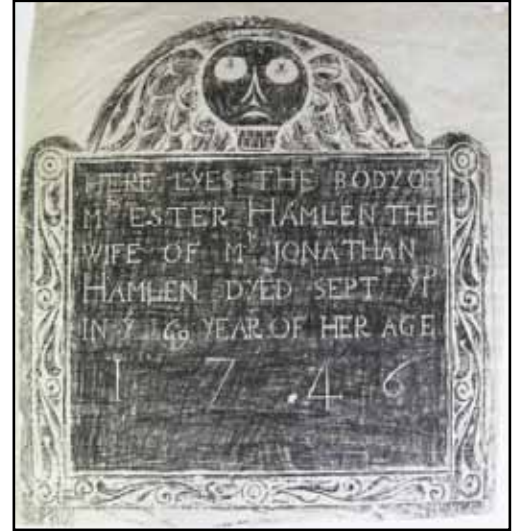 HERE LYES THE BODY OF
Mrs ESTER HAMLEN THE
WIFE OF Mr JONATHAN
HAMLEN DYED SEPT
IN Ye 69 YEAR OF HER AGE
1746